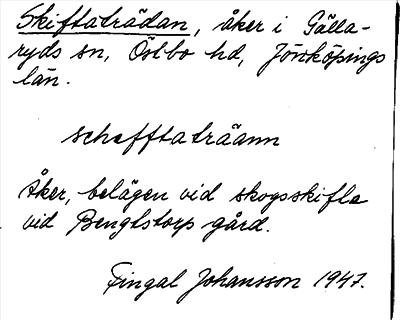 Skiftaträdan, åker i Gälla-
ryds sn, Östbo hd, Jönköpings
län.
scheftaträann
Åker, belägen vid skogsskifte
vid Bengtstorps gård.
Fingal Johansson 1947.